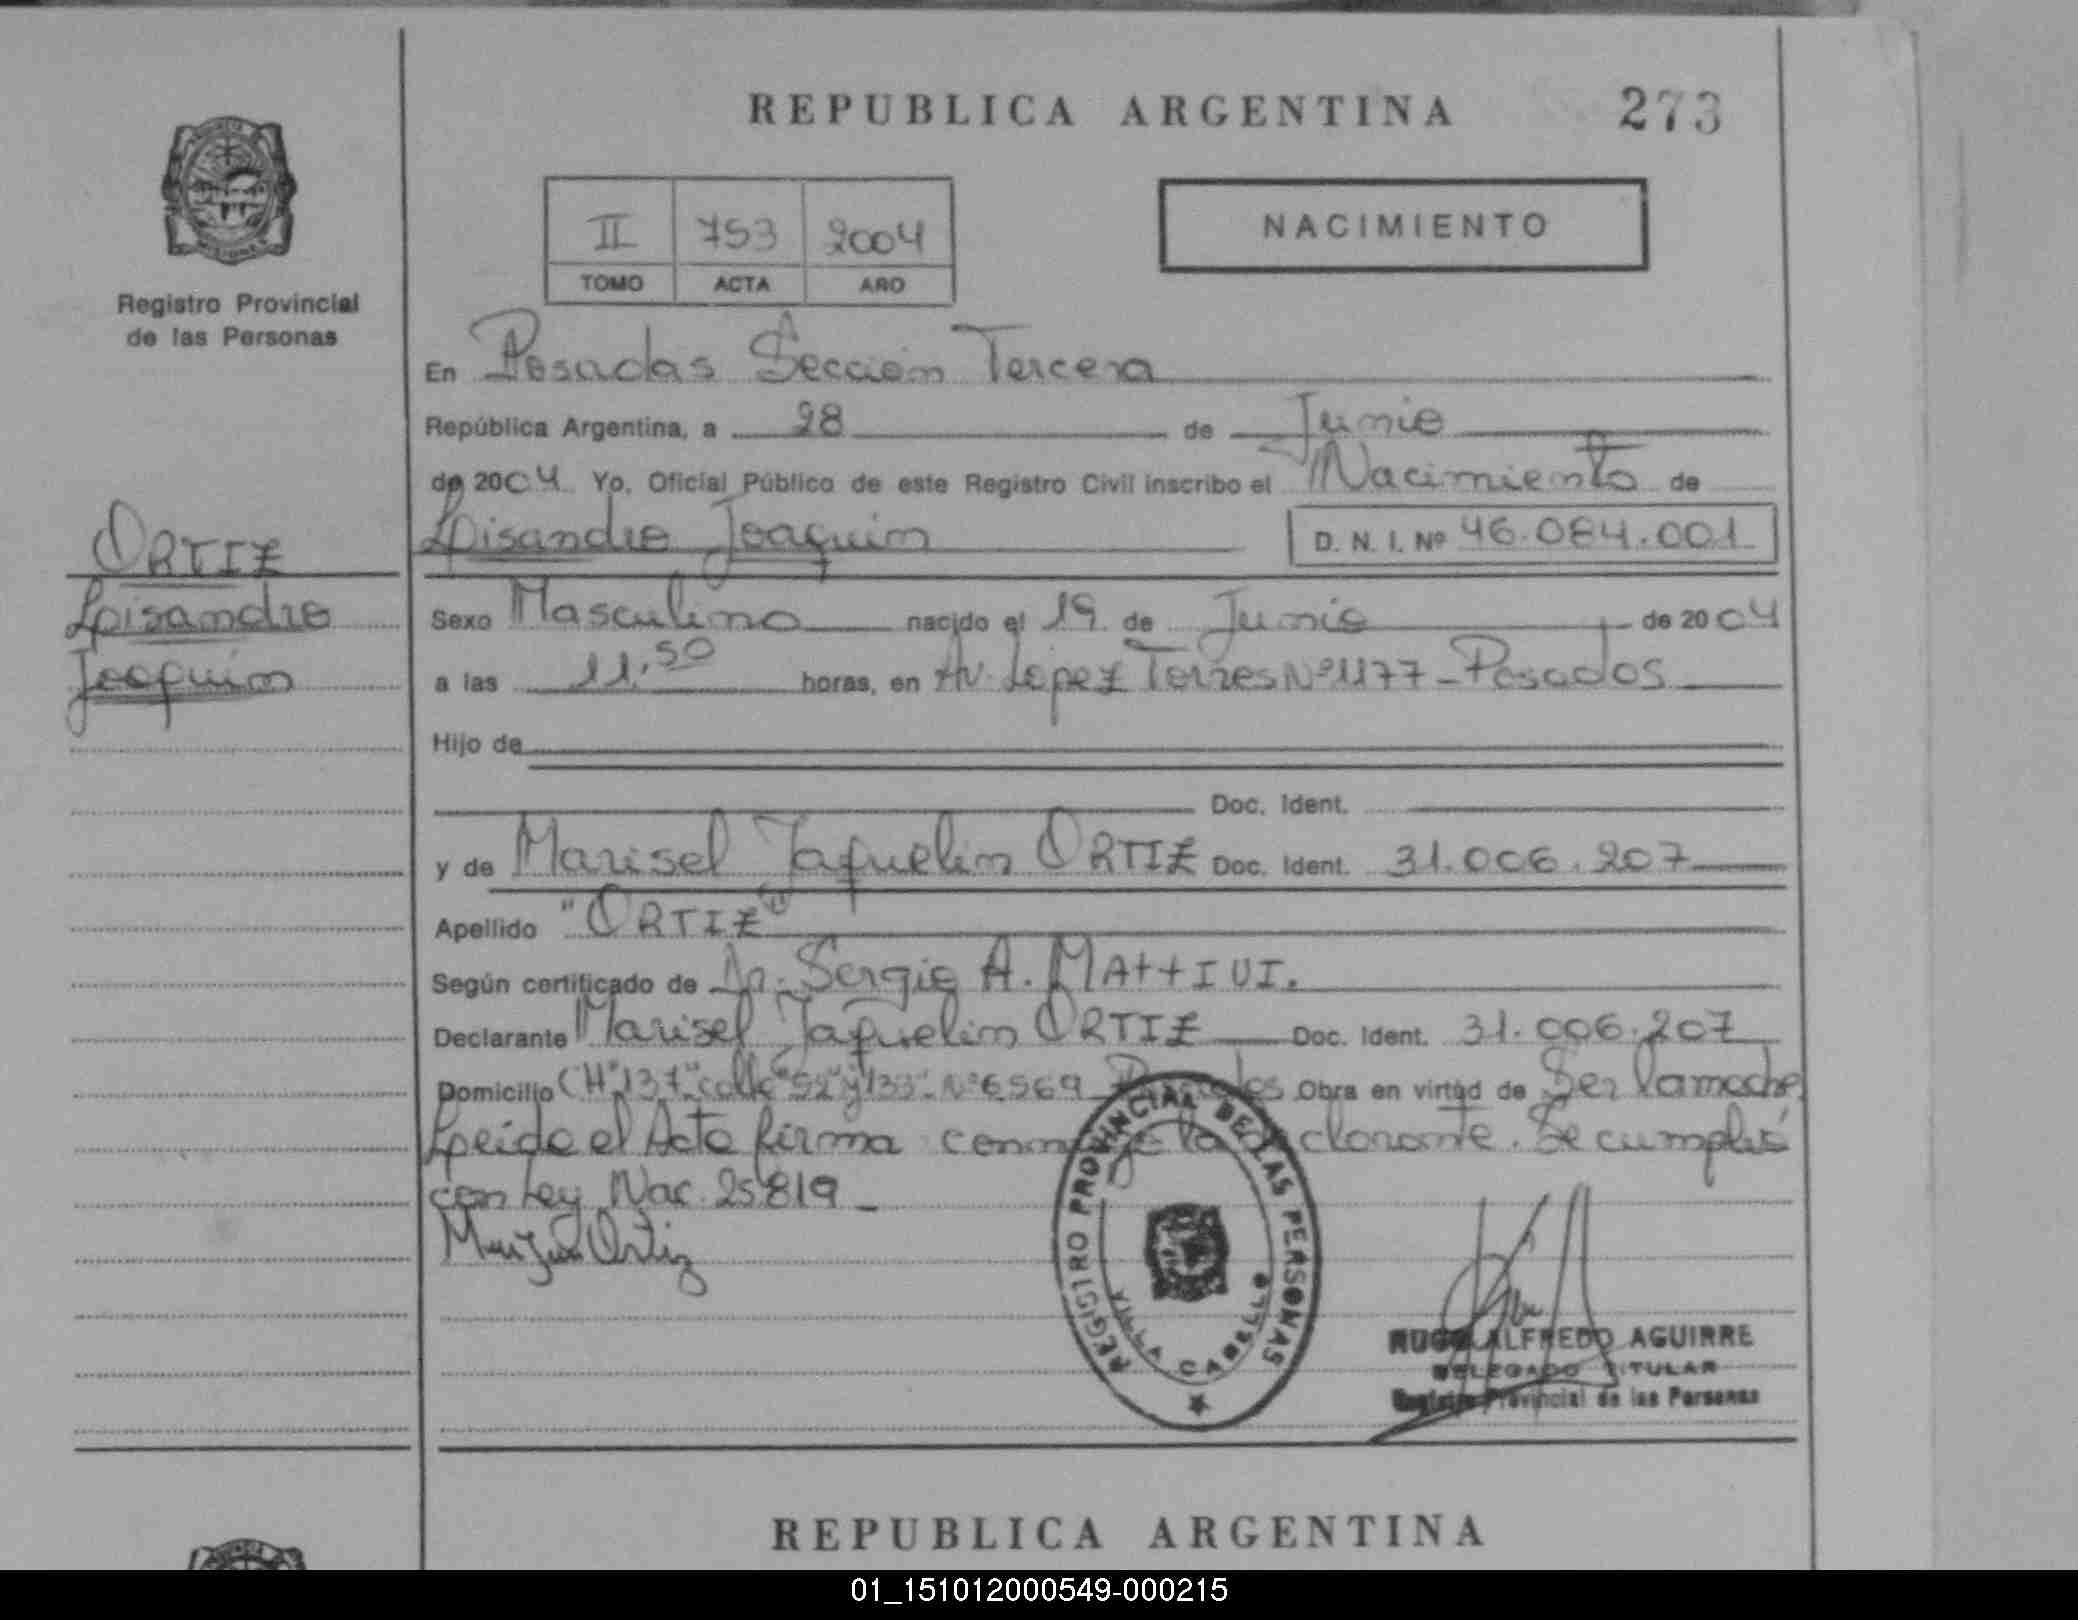 REPUBLICA ARGENTINA
273
Registro Provincial
de las Personas
II 753 2004
TOMO ACTA AÑO
NACIMIENTO
En Posadas Sección Tercera
República Argentina, a 28 de Junio
de 2004 Yo, Oficial Público de este Registro Civil inscribo el Nacimiento de
Lisandro Joaquin D. N. I. Nº 46.084.001
ORTIZ
Lisandro
Joaquin
Sexo Masculino nacido el 19 de Junio de 2004
a las 11,50 horas, en Av. Lopez Torres Nº1177 - Posadas
Hijo de
Doc. Ident.
y de Marisel Jaquelin ORTIZ Doc. Ident. 31.006.207
Apellido "ORTIZ"
Según certificado de Dr. Sergio A. MAttIUI.
Declarante Marisel Jaquelin ORTIZ Doc. Ident. 31.006.207
Domicilio CH"137" calle "52" y 133" Nº6569 Posadas Obra en virtud de Ser la madre
Leido el Acta firma conmigo la declarante. Se cumplió
con Ley Nac. 25819
Ortiz
REGISTRO PROVINCIAL DE LAS PERSONAS
VILLA CABELLO
HUGO ALFREDO AGUIRRE
DELEGADO TITULAR
Registro Provincial de las Personas
REPUBLICA ARGENTINA
01_151012000549-000215